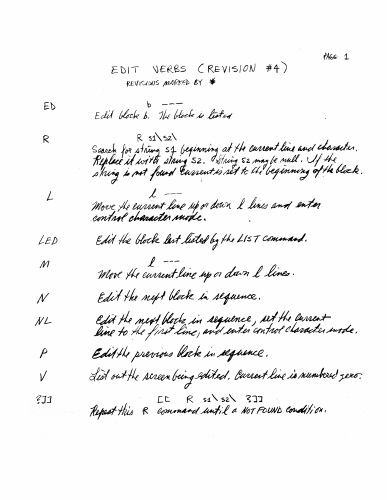 PAGE 1
EDIT VERBS (REVISION #4)
REVISIONS MARKED BY *
ED b ---
Edit block b. The block is listed
R R s1\s2\
Search for string s1 beginning at the current line and character.
Replace it with string s2. String s2 may be null. If the
string is not found current is set to the beginning of the block.
L l ---
Move the current line up or down l lines and enter
control character mode.
LED Edit the block last listed by the LIST command.
M l ---
Move the current line up or down l lines.
N Edit the next block in sequence.
NL Edit the next block in sequence, set the current
line to the first line, and enter control character mode.
P Edit the previous block in sequence.
V List out the screen being edited. Current line is numbered zero.
?]] [[ R s1\ s2\ ?]]
Repeat this R command until a NOT FOUND condition.